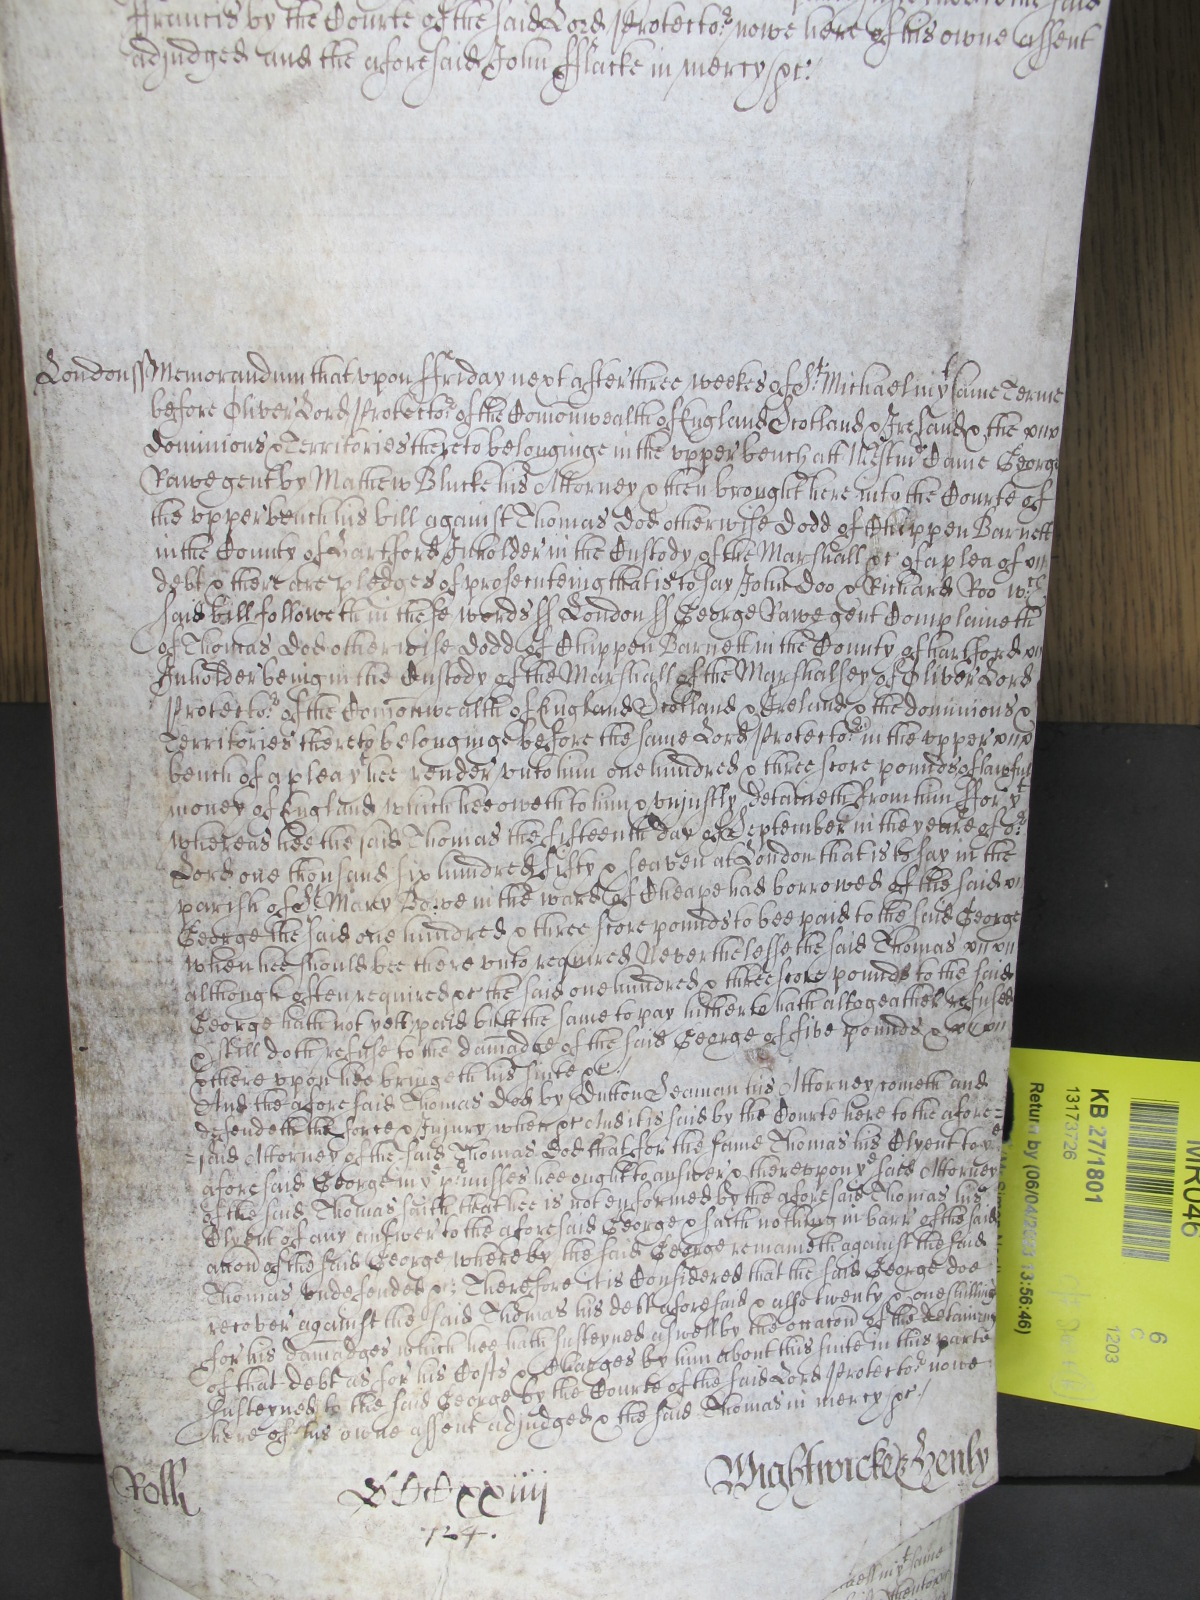 Francis by the Courte of the said Lord Protector nowe here of his owne assent
adjudged and the aforesaid John fflacke in mercy &c:
London ss Memorandum that upon ffriday next after three weekes of St Michael in yt same Terme
before Oliver Lord Protector of the Comonwealth of England Scotland & Ireland & the
dominions & Territories thereto belonginge in the upper bench att Westmr Came George
Rawe gent by Mathew Blucke his Attorney & then brought here into the Courte of
the upper bench his bill against Thomas Dod otherwise Dodd of Chippen Barnett
in the County of Hartford Inholder in the Custody of the Marshall &c of a plea of
debt & there are pledges of prosecuteing that is to say John Doo & Richard Roo wch
said bill followeth in these words ss London ss George Rawe gent Complaineth
of Thomas Dod otherwise Dodd of Chippen Barnett in the County of hartford
Inholder being in the Custody of the Marshall of the Marshalsey of Oliver Lord
Protector of the Comonwealth of England Scotland & Ireland & the dominions &
Territories thereto belonginge before the same Lord Protector in the upper
bench of a plea yt hee render unto him one hundred & three score pounds of lawfull
money of England which hee oweth to him & unjustly detaineth from him ffor yt
whereas hee the said Thomas the fifteenth day of September in the yeare of or
Lord one thousand six hundred fifty & seaven at London that is to say in the
parish of St Mary Bowe in the ward of Cheape had borrowed of the said
George the said one hundred & three score pounds to bee paid to the said George
when hee should bee there unto required Neverthelesse the said Thomas
although often required &c the said one hundred & three score pounds to the said
George hath not yett paid butt the same to pay hitherto hath altogeather refused
& still doth refuse to the damadge of the said George of five pounds &
& there upon hee bringeth his suite &c
And the aforesaid Thomas Dod by Dutton Seaman his Attorney cometh and
defendeth the force & Injury when &c And it is said by the Courte here to the afore=
=said Attorney of the said Thomas Dod that for the same Thomas his Clyent to ye
aforesaid George in ye pmisses hee ought to answer & thereupon ye said Attorney
of the said Thomas saith that hee is not enformed by the aforesaid Thomas his
Clyent of any answer to the aforesaid George & saith nothing in barr of the said
accon of the said George whereby the said George remaineth against the said
Thomas undefended &c: Therefore it is Considered that the said George doe
recover against the said Thomas his debt aforesaid & also twenty & one shillings
for his damadges which hee hath susteyned aswell by the occacon of the detaining
of that debt as for his Costs & Charges by him about this suite in this parte
susteyned to the said George by the Courte of the said Lord Protector nowe
here of his owne assent adjudged & the said Thomas in mercy &c./
Roll
xxiiij
124.
Wightwicke & Henly
MR046
KB 27/1801
1317326
Return by (06/04/2023 13:56:46)
6
C
1203